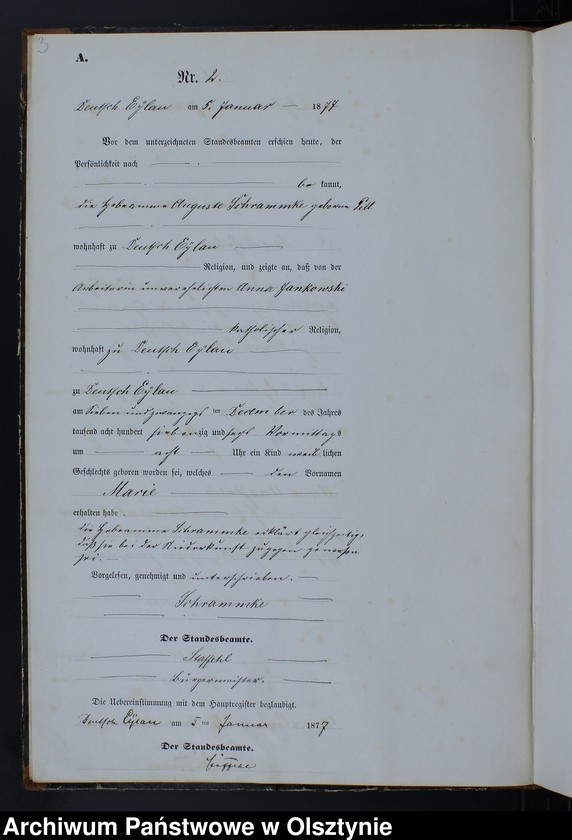 3
A.
Nr. 2.
Deutsch Eylau am 5. Januar 1877
Vor dem unterzeichneten Standesbeamten erschien heute, der
Persönlichkeit nach
be kannt,
die Hebeamme Auguste Schrammke geborne
wohnhaft zu Deutsch Eylau
Religion, und zeigte an, daß von der
Arbeiterin unverehelichten Anna Jankowski
katholischer Religion,
wohnhaft zu Deutsch Eylau
zu Deutsch Eylau
am sieben und zwanzigs ten December des Jahres
tausend acht hundert siebenzig und sechs Vormittags
um acht Uhr ein Kind weib lichen
Geschlechts geboren worden sei, welches den Vornamen
Marie
erhalten habe.
die Hebeamme Schrammke erklärt gleichzeitig,
daß sie bei der Niederkunft zugegen gewesen
sei.
Vorgelesen, genehmigt und unterschrieben.
Schrammke
Der Standesbeamte.
Bürgermeister.
Die Uebereinstimmung mit dem Hauptregister beglaubigt.
Deutsch Eylau am 5 ten Januar 1877
Der Standesbeamte.
Archiwum Państwowe w Olsztynie